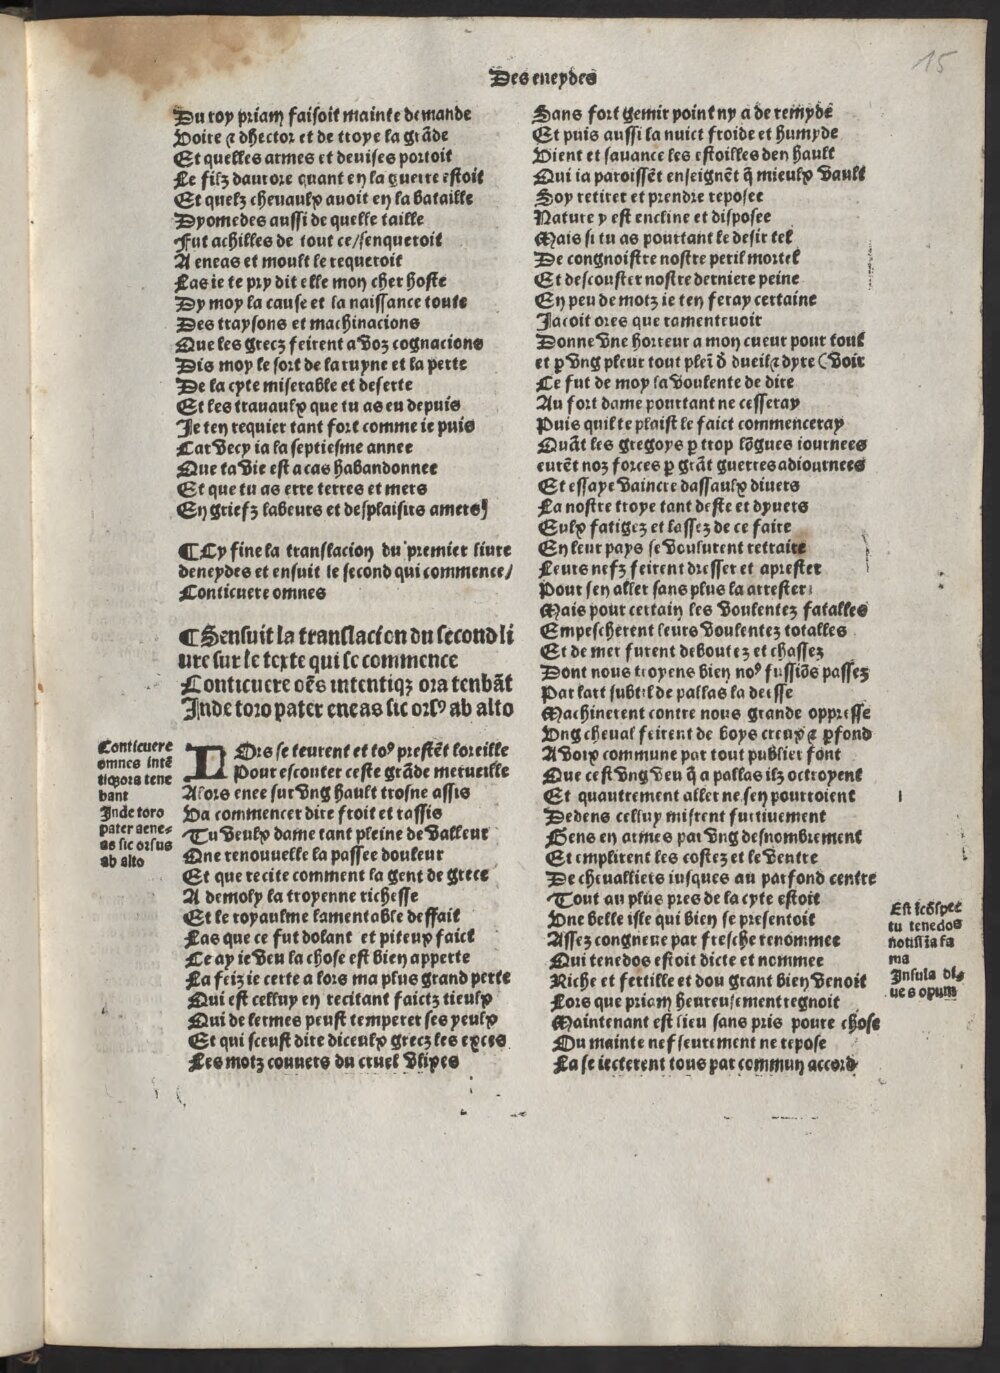 Des eneydes
15
Du roy priam faisoit mainte demande
Voire & dhector et de troye la grãde
Et quelles armes et deuises portoit
Le filz daurore quant en la guerre estoit
Et quelz cheuaulx auoit en la bataille
Dyomedes aussi de quelle taille
Fut achilles de tout ce/senqueroit
A eneas et moult le requeroit
Las ie te pry dit elle mon cher hoste
Dy moy la cause et la naissance toute
Des traysons et machinacions
Que les grecz feirent a voz cognacions
Dis moy le sort de la ruyne et la perte
De la cyte miserable et deserte
Et les trauaulx que tu as eu depuis
Je ten requier tant fort comme ie puis
Car vecy ia la septiesme annee
Que ta vie est a cas habandonnee
Et que tu as erre terres et mers
En griefz labeurs et desplaisirs amers
¶Cy fine la translacion du premier liure
deneydes et ensuit le second qui commence/
Conticuere omnes
¶Sensuit la translacion du second li
ure sur le texte qui se commence
Conticuere oẽs intentiqz ora tenbãt
Inde toro pater eneas sic orsꝰ ab alto
Conticuere
omnes intẽ
tiqzora tene
bant
Inde toro
pater aene-
as sic orsus
ab alto
LOrs se teurent et toꝰ prestẽt loreille
Pour escouter ceste grãde merueille
Alors enee sur vng hault trosne assis
Va commencer dire froit et rassis
Tu veulx dame tant pleine de valleur
Que renouuelle la passee douleur
Et que recite comment la gent de grece
A demoly la troyenne richesse
Et le royaulme lamentable deffait
Las que ce fut dolant et piteux faict
Ce ay ie veu la chose est bien apperte
La feiz ie certe a lors ma plus grand perte
Qui est celluy en recitant faictz tieulx
Qui de lermes peust temperer ses yeulx
Et qui sceust dire diceulx grecz les exces
Les motz couuers du cruel vlixes
Sans fort gemir point ny a de remyde
Et puis aussi la nuict froide et humyde
Vient et sauance les estoilles den hault
Qui ia paroissẽt enseignẽt q̃ mieulx vault
Soy retirer et prendre reposee
Nature y est encline et disposee
Mais si tu as pourtant le desir tel
De congnoistre nostre peril mortel
Et descouster nostre derniere peine
En peu de motz ie ten feray certaine
Jacoit ores que ramentruoir
Donne vne horreur a mon cueur pour tout
et ꝑ vng pleur tout plei᷑ d̃ dueil & dyre (voir
Ce fut de moy la voulente de dire
Au fort dame pourtant ne cesseray
Puis quil te plaist le faict commenceray
Quãt les gregoys ꝑ trop lõgues iournees
eurẽt noz forces ꝑ grãt guerres adiournees
Et essaye vaincre dassaulx diuers
La nostre troye tant deste et dyuers
Eulx fatigez et lassez de ce faire
En leur pays se voulurent retraire
Leurs nefz feirent dresser et aprester
Pour sen aller sans plus la arrester
Mais pour certain les voulentez fatalles
Empescherent leurs voulentez totalles
Et de mer furent deboutez et chassez
Dont nous troyens bien noꝰ fussiõs passez
Par lart subtil de pallas la deesse
Machinerent contre nous grande oppresse
Vng cheual feirent de boys creux & ꝑfond
A voix commune par tout publier font
Que cest vng veu q̃ a pallas ilz octroyent
Et quautrement aller ne sen pourroient
Dedens celluy misrent furtiuement
Gens en armes par vng desnombrement
Et emplirent les costez et le ventre
De cheualliers iusques au parfond centre
Tout au plus pres de la cyte estoit
Vne belle isle qui bien se presentoit
Assez congneue par fresche renommee
Qui tenedos estoit dicte et nommee
Riche et fertille et dou grant bien venoit
Lors que priam heureusement regnoit
Maintenant est lieu sans pris poure chose
Ou mainte nef seurement ne repose
La se iecterent tous par commun accord
Est icõspec
tu tenedos
notissia fa
ma
Insula di-
ues opum